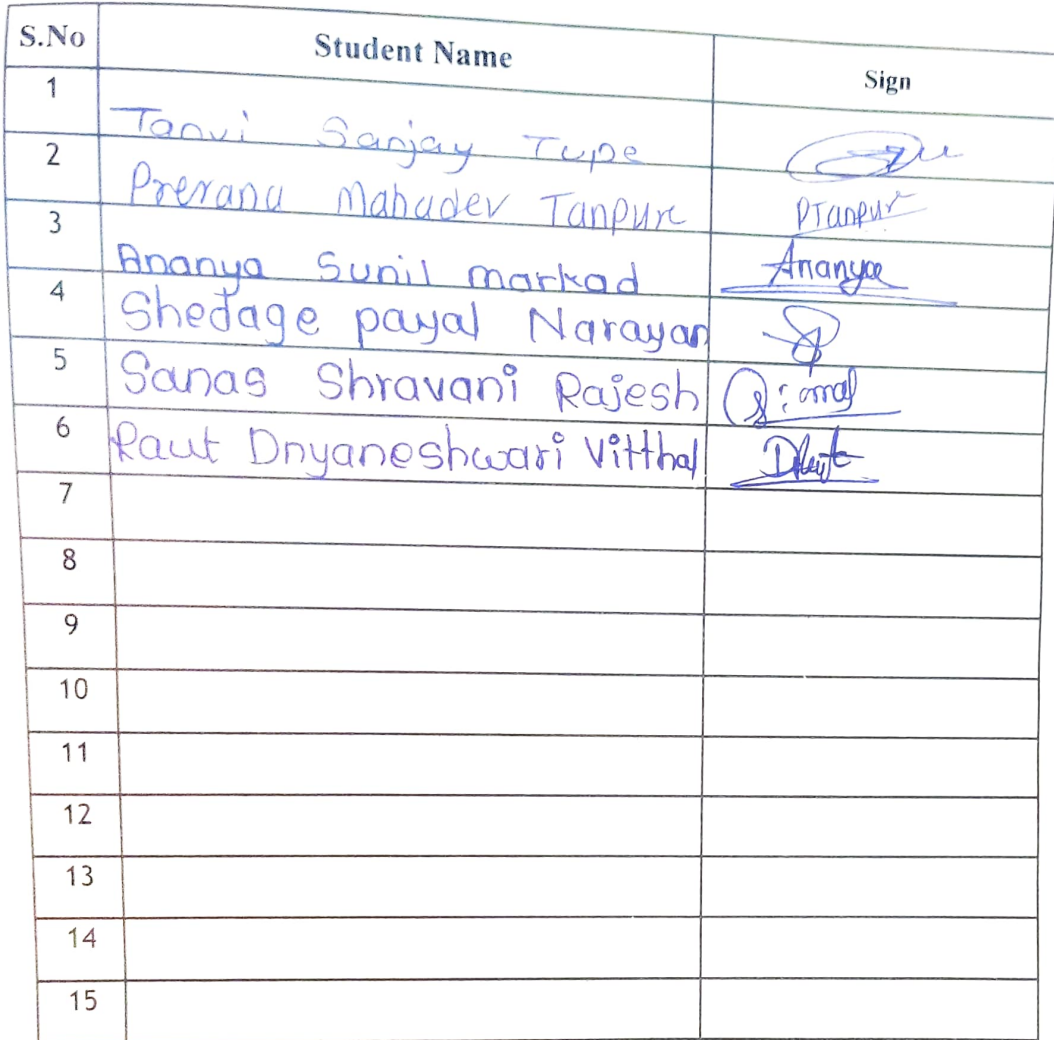 S.No Student Name Sign
1 Tanvi Sanjay Tupe
2 Prerana Mahadev Tanpure PTanpur
3 Ananya Sunil markad Ananya
4 Shedage payal Narayan
5 Sanas Shravani Rajesh
6 Raut Dnyaneshwari Vitthal
7
8
9
10
11
12
13
14
15